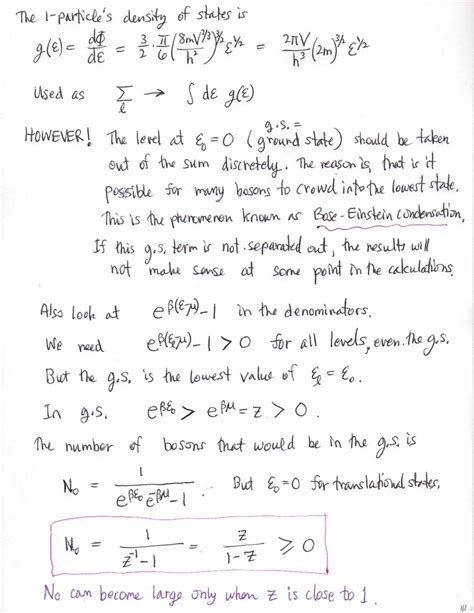 The 1-particle's density of states is
g(ε) = dΦ/dε = 3/2 · π/6 (8mV^2/3/h²)^3/2 ε^1/2 = 2πV/h³ (2m)^3/2 ε^1/2
Used as Σ_l → ∫ dε g(ε)
g.s. =
HOWEVER! The level at ε₀ = 0 (ground state) should be taken
out of the sum discretely. The reason is, that is it
possible for many bosons to crowd into the lowest state.
This is the phenomenon known as Bose-Einstein condensation.
If this g.s. term is not separated out, the results will
not make sense at some point in the calculations.
Also look at e^β(ε_l-μ) - 1 in the denominators.
We need e^β(ε_l-μ) - 1 > 0 for all levels, even the g.s.
But the g.s. is the lowest value of ε_l = ε₀.
In g.s. e^βε₀ > e^βμ = z > 0.
The number of bosons that would be in the g.s. is
N₀ = 1/(e^βε₀ e^-βμ - 1). But ε₀ = 0 for translational states,
N₀ = 1/(z⁻¹ - 1) = z/(1 - z) ≥ 0
N₀ can become large only when z is close to 1.